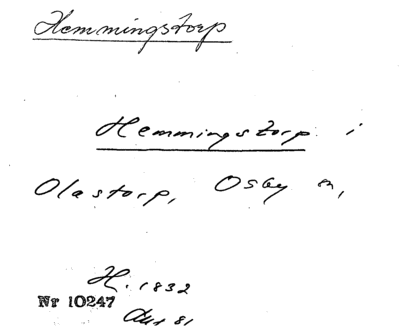 Hemmingstorp
Hemmingstorp i
Olastorp, Osby sn,
H. 1832
Nr 10247
81